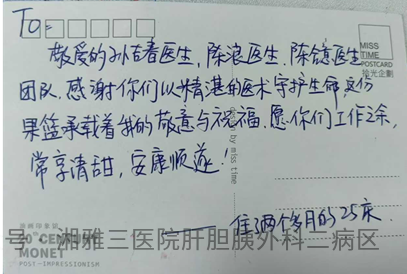 To:
MISS TIME
POSTCARD
拾光企劃
敬爱的孙吉春医生,陈浪医生、陈镱医生
团队.感谢你们以精湛的医术守护生命,这份
果篮承载着我的敬意与祝福.愿你们工作之余,
常享清甜,安康顺遂!
—— 住了两个多月的25床
by miss time
20 CENTURY
MONET
POST-IMPRESSIONISM
号 湘雅三医院肝胆胰外科二病区